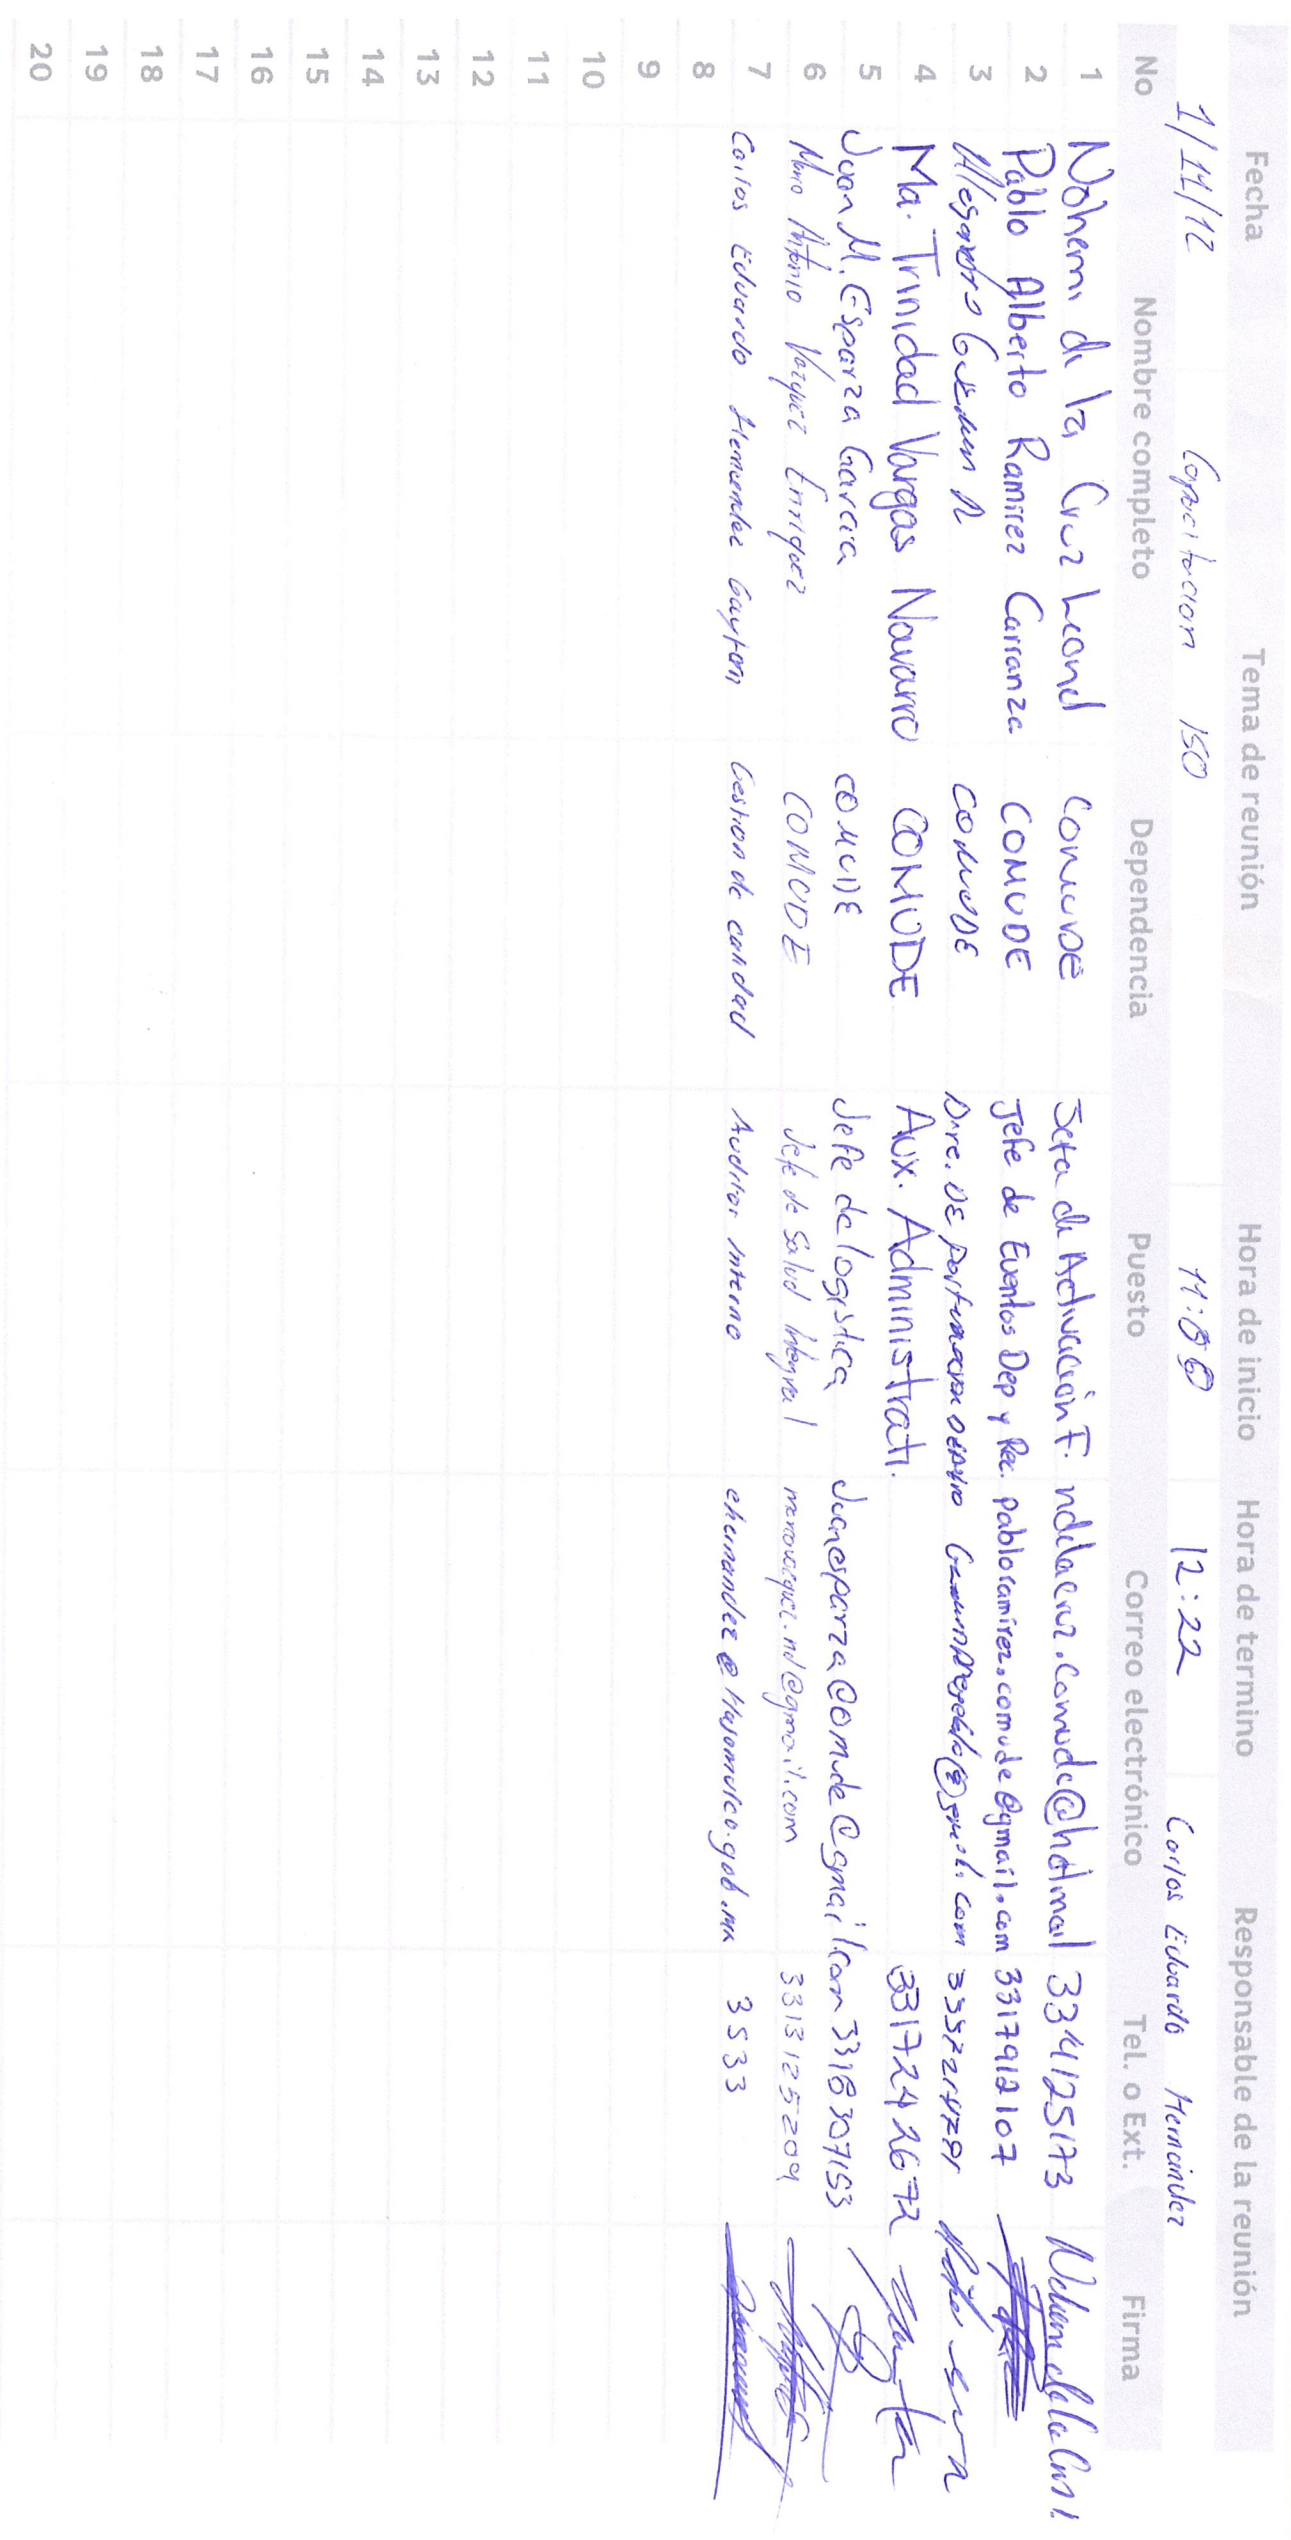 Fecha Tema de reunión Hora de inicio Hora de termino Responsable de la reunión
1/11/12 Capacitacion ISO 11:00 12:22 Carlos Eduardo Hernández
No Nombre completo Dependencia Puesto Correo electrónico Tel. o Ext. Firma
1 Nohemi de la Cruz Leonel COMUDE Jefa de Activación F. ndelacruz.comude@hotmail 3341125173 Nohemi de la Cruz
2 Pablo Alberto Ramirez Carranza COMUDE Jefe de Eventos Dep y Rec. pabloramirez.comude@gmail.com 3317912107
3 Alejandro COMUDE
4 Ma. Trinidad Vargas Navarro COMUDE Aux. Administrati. 3317242672
5 Juan M. Esparza Garcia COMUDE Jefe de logistica Juanesparzacomude@gmail.com 3316307153
6 Antonio Vazquez Enriquez COMUDE Jefe de Salud Integral 3313125209
7 Carlos Eduardo Hernandez Gayton Gestion de calidad Auditor interno ehernandez@tlajomulco.gob.mx 3533
8
9
10
11
12
13
14
15
16
17
18
19
20